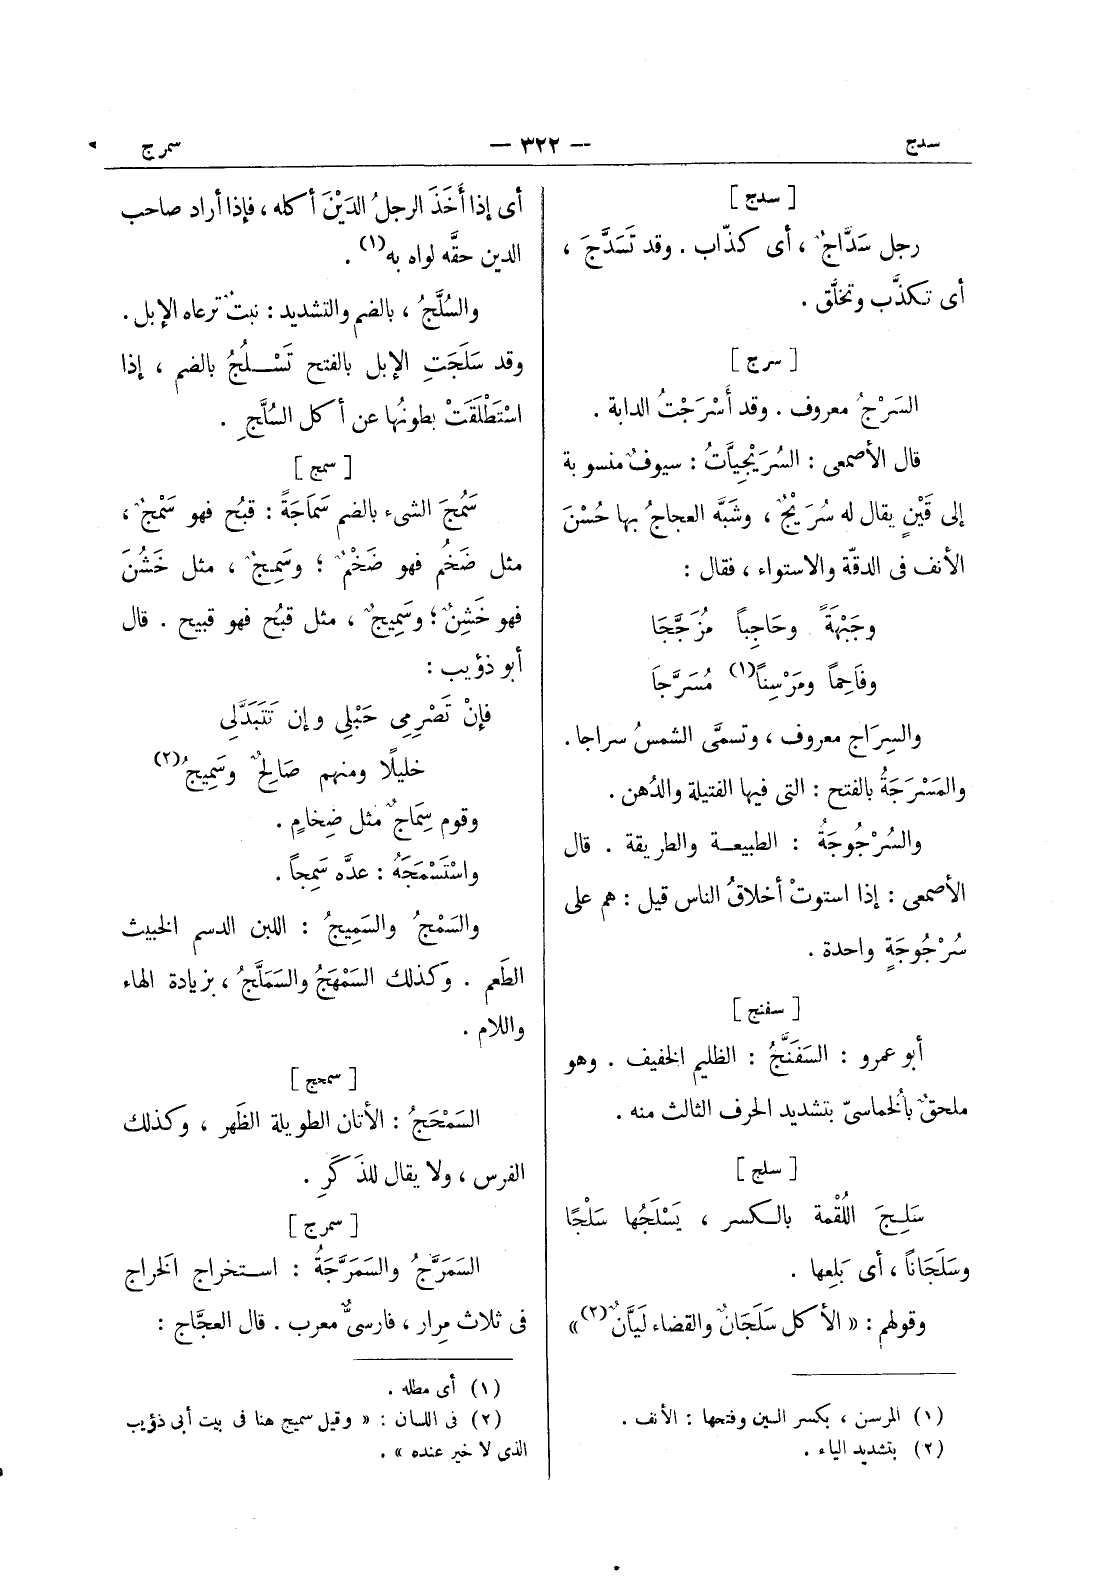 سدج
— ٣٢٢ —
سمرج
[ سدج ]
رجل سَدَّاجٌ ، أى كذّاب . وقد تَسَدَّجَ ،
أى تكذَّب وتخلَّق .
[ سرج ]
السَرْجُ معروف . وقد أَسْرَجْتُ الدابة .
قال الأصمعى : السُرَيْجِيَّاتُ : سيوفٌ منسوبة
إلى قَيْنٍ يقال له سُرَيْجٌ ، وشَبَّه العجاجُ بها حُسْنَ
الأنف فى الدقّة والاستواء ، فقال :
وجَبْهَةً وحَاجِباً مُزَجَّجَا
وفَاحِماً ومَرْسِناً(١) مُسَرَّجَا
والسِرَاج معروف ، وتسمَّى الشمسُ سراجا .
والمَسْرَجَةُ بالفتح : التى فيها الفتيلة والدُهن .
والسُرْجُوجَةُ : الطبيعــة والطريقة . قال
الأصمعى : إذا استوتْ أخلاقُ الناس قيل : هم على
سُرْجُوجَةٍ واحدة .
[ سفنج ]
أبو عمرو : السَفَنَّجُ : الظليم الخفيف . وهو
ملحقٌ بالُخماسىّ بتشديد الحرف الثالث منه .
[ سلج ]
سَلِجَ اللُقْمة بالكسر ، يَسْلَجُها سَلْجًا
وسَلَجَاناً ، أى بَلِعها .
وقولهم : « الأكل سَلَجَانٌ والقضاء لَيَّانٌ(٢) »
(١) المرسن ، بكسر السين وفتحها : الأنف .
(٢) بتشديد الياء .
أى إذا أَخَذَ الرجلُ الدَيْنَ أكله ، فإذا أراد صاحب
الدين حقَّه لواه به(١) .
والسُلَّجُ ، بالضم والتشديد : نبتٌ ترعاه الإبل .
وقد سَلَجَتِ الإبل بالفتح تَسْـلُجُ بالضم ، إذا
اسْتَطْلَقَتْ بطونُها عن أكل السُلَّجِ .
[ سمج ]
سَمُجَ الشىء بالضم سَمَاجَةً : قبُح فهو سَمْجٌ ،
مثل ضَخُم فهو ضَخْمٌ ؛ وسَمِجٌ ، مثل خَشُنَ
فهو خَشِنٌ ؛ وسَمِيجٌ ، مثل قبُح فهو قبيح . قال
أبو ذؤيب :
فإنْ تَصْرِمِى حَبْلِى وإن تَتَبَدَّلِى
خليلًا ومنهم صَالِحٌ وسَمِيجُ(٢)
وقوم سِمَاجٌ مثل ضِخامٍ .
واسْتَسْمَجَهُ : عدَّه سَمِجاً .
والسَمْجُ والسَمِيجُ : اللبن الدسم الخبيث
الطَعم . وكذلك السَمْهَجُ والسَمَلَّجُ ، بزيادة الهاء
واللام .
[ سمحج ]
السَمْحَجُ : الأتان الطويلة الظَهر ، وكذلك
الفرس ، ولا يقال للذَكَرِ .
[ سمرج ]
السَمَرَّجُ والسَمَرَّجَةُ : استخراج الخراج
فى ثلاث مِرار ، فارسىٌّ معرب . قال العجَّاج :
(١) أى مطله .
(٢) فى اللسان : « وقيل سميج هنا فى بيت أبى ذؤيب
الذى لا خير عنده » .